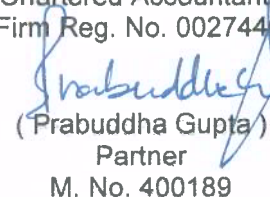 Chartered Accountant
Firm Reg. No. 002744
Prabuddha G
( Prabuddha Gupta )
Partner
M. No. 400189